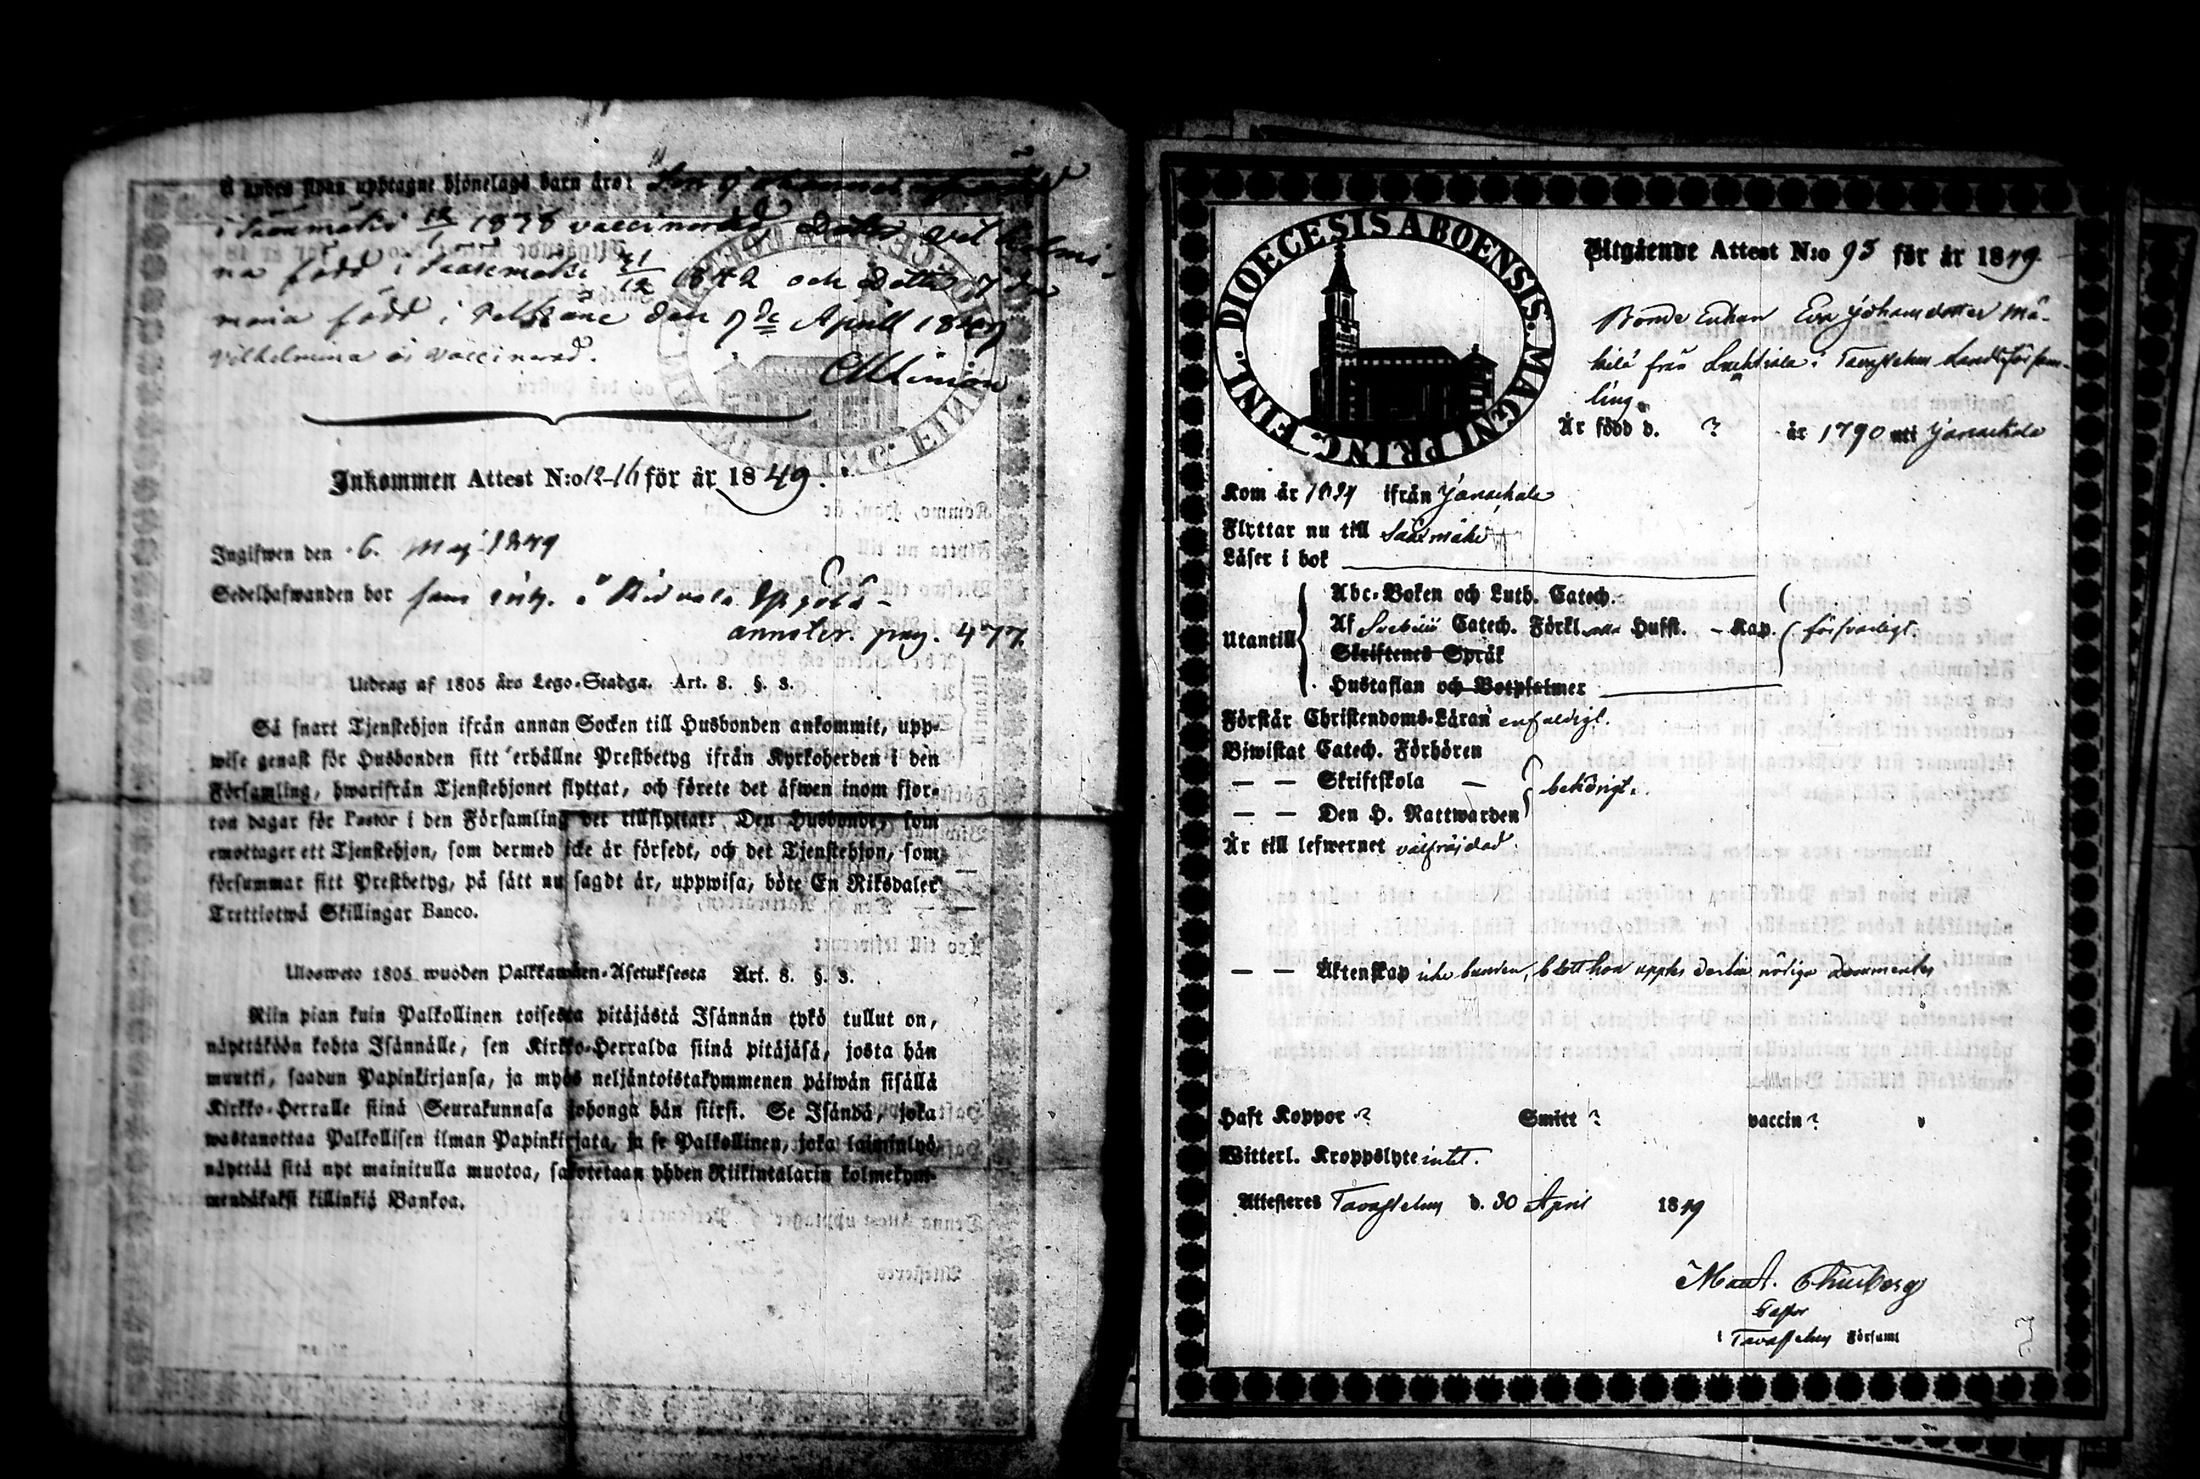 å andra sidan upptagne hjonelags barn äro: Son Johannes
i Sääxmäki 12/1 1838 vaccinerad, Dotter Vilhelmi-
na född i Sääxmäki 21/12 1842 och Dotter Ida
maria född i Pelkäne den 7de April 1849
Vilhelmina är vaccinerad.
Inkommen Attest N:o 12-16 för år 1849.
Ingifwen den 6. Maj 1849
Sedelhafwanden bor som
pag. 477
Utdrag af 1805 års Lego-Stadga. Art. 8. §. 3.
Så snart Tjenstehjon ifrån annan Socken till Husbonden ankommit, upp-
wise genast för Husbonden sitt erhållne Prestbetyg ifrån Kyrkoherden i den
Församling, hwarifrån Tjenstehjonet flyttat, och förete det äfwen inom fjor-
ton dagar för Pastor i den Församling det tillflyttat: Den Husbonde, som
emottager ett Tjenstehjon, som dermed icke är försedt, och det Tjenstehjon, som
försummar sitt Prestbetyg, på sätt nu sagdt är, uppwisa, böte En Riksdaler
Trettiotwå Skillingar Banco.
Ulosweto 1805 wuoden Palkkawäen-Asetuksesta Art. 8. §. 3.
Niin pian kuin Palkollinen toisesta pitäjästä Isännän tykö tullut on,
näyttäköön kohta Isännälle, sen Kirkko-Herralda siinä pitäjäsä, josta hän
muutti, saadun Papinkirjansa, ja myös neljäntoistakymmenen päiwän sisällä
Kirkko-Herralle siinä Seurakunnasa johonga hän siirsi. Se Isändä, joka
wastanottaa Palkollisen ilman Papinkirjata, ja se Palkollinen, joka laiminlyö
näyttää sitä nyt mainitulla muotoa, sakotetaan yhden Riikintalarin kolmekym-
mendäkaksi killinkiä Bankoa.
DIOECESIS ABOENSIS. MAGNI PRINC. FINL.
Utgående Attest N:o 93 för år 1849
Bonde Enkan Eva Johansdotter Mä-
kilä från Luhtiala i Tavastehus Landsförsam-
ling.
Är född d. ? år 1790 uti Janackala
Kom år ifrån Janackala
Flyttar nu till Sääxmäki
Läser i bok
Utantill
Abc-Boken och Luth. Catech.
Af Svebilii Catech. Förkl. Hufst. – Kap. försvarligt.
Skriftenes Språk
Hustaflan och Botpsalmer
Förstår Christendoms-Läran enfaldigt.
Biwistat Catech. Förhören
— — Skriftskola — behörigt.
— — Den H. Nattwarden
Är till lefwernet välfräjdad.
— — Äktenskap icke bunden, blott hon uppter dertill nödiga documenter
Haft Koppor ? Smitt ? vaccin ?
Witterl. Kroppslyte intet.
Attesteres Tavastehus d. 30 April 1849
Maut. Churberg
Pastor
i Tavastehus Förs:ml